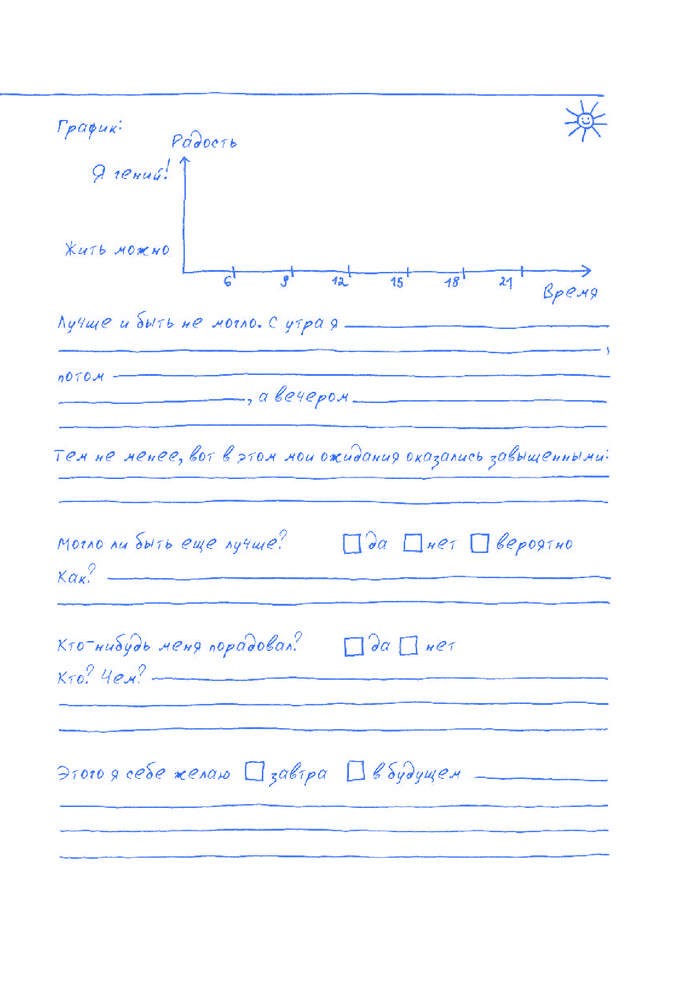 График:
Радость
Я гений!
Жить можно
6 9 12 15 18 21
Время
Лучше и быть не могло. С утра я
,
потом
, а вечером
Тем не менее, вот в этом мои ожидания оказались завышенными:
Могло ли быть еще лучше? да нет вероятно
Как?
Кто-нибудь меня порадовал? да нет
Кто? Чем?
Этого я себе желаю завтра в будущем